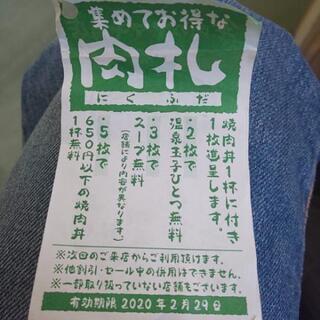 集めてお得な
肉札
にくふだ
焼肉丼1杯に付き
1枚進呈します。
・2枚で
温泉玉子ひとつ無料
・3枚で
スープ無料
(店舗により内容が異なります。)
・5枚で
650円以下の焼肉丼
1杯無料
※次回のご来店からご利用頂けます。
※他割引・セール中の併用はできません。
※一部取り扱っていない店舗もございます。
有効期限 2020年2月29日